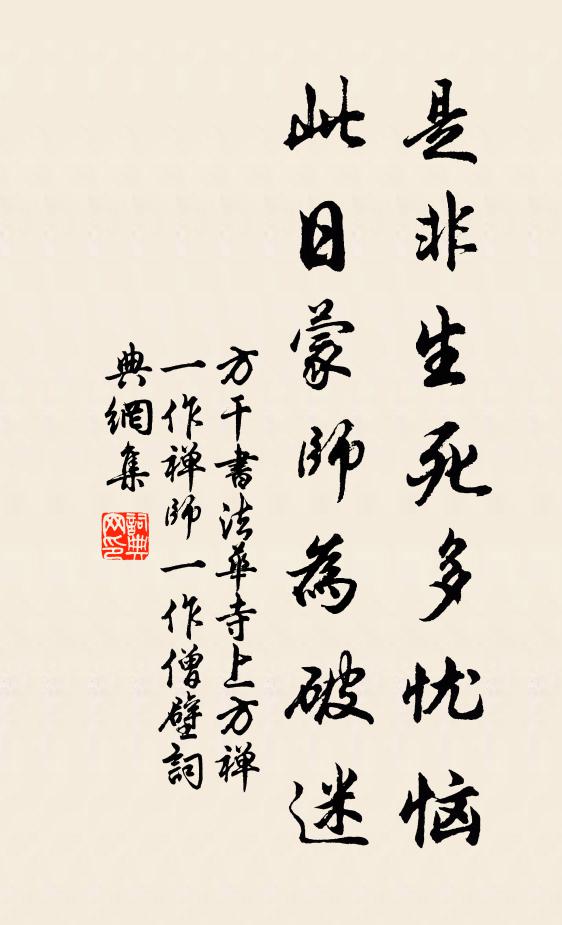 是非生死多忧恼
此日蒙師為破迷
方干書法華寺上方禅
一作禅師一作僧壁詞
典網集
詞典网印